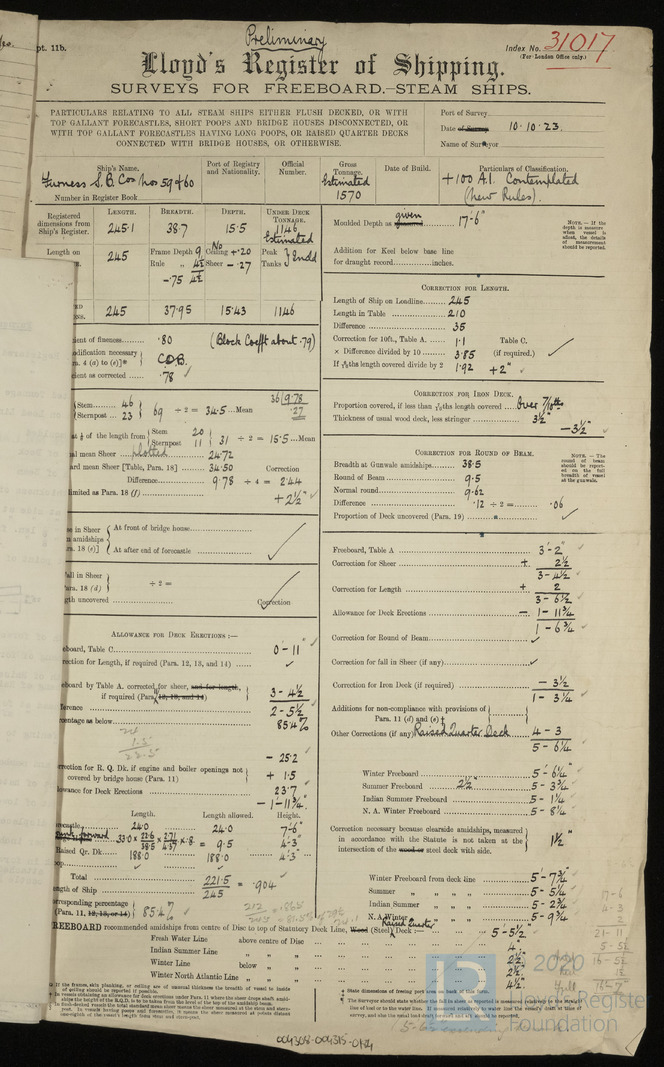 Preliminary
pt. 11b.
Index No. 31017
(For London Office only.)
Lloyd's Register of Shipping.
SURVEYS FOR FREEBOARD.—STEAM SHIPS.
PARTICULARS RELATING TO ALL STEAM SHIPS EITHER FLUSH DECKED, OR WITH
TOP GALLANT FORECASTLES, SHORT POOPS AND BRIDGE HOUSES DISCONNECTED, OR
WITH TOP GALLANT FORECASTLES HAVING LONG POOPS, OR RAISED QUARTER DECKS
CONNECTED WITH BRIDGE HOUSES, OR OTHERWISE.
Port of Survey
Date of Survey 10.10.23.
Name of Surveyor
Ship's Name.
Furness S.B. Cos Nos 59 & 60
Number in Register Book
Port of Registry
and Nationality.
Official
Number.
Gross
Tonnage.
Estimated
1570
Date of Build.
Particulars of Classification.
+100 A.1. Contemplated
(New Rules).
Registered
dimensions from
Ship's Register.
LENGTH. BREADTH. DEPTH. UNDER DECK
TONNAGE.
245.1 38.7 15.5 1146
Estimated
Length on
245 Frame Depth 9 No Ceiling + .20 Peak
Rule „ 4½ Sheer - .27 Tanks } Endd
- .75 4½
245 37.95 15.43 1146
ient of fineness .80 (Block Coefft about .79)
odification necessary
ra. 4 (a) to (e)]* C.D.B.
ient as corrected .78
Stem 46
Sternpost 23 } 69 ÷ 2 = 34.5 Mean
36 9.78
.27
at ⅛ of the length from { Stem 20
Sternpost 11 } 31 ÷ 2 = 15.5 Mean
al mean Sheer plotted 24.72
ard mean Sheer [Table, Para. 18] 34.50 Correction
Difference 9.78 ÷ 4 = 2.44
limited as Para. 18 (f) + 2½"
se in Sheer
amidships
ra. 18 (e)]
At front of bridge house
At after end of forecastle
all in Sheer
ara. 18 (d) ÷ 2 =
gth uncovered Correction
ALLOWANCE FOR DECK ERECTIONS:—
eboard, Table C 0 - 11"
rection for Length, if required (Para. 12, 13, and 14)
eboard by Table A. corrected for sheer, and for length,
if required (Para. 12, 13, and 14) 3 - 4½
ference 2 - 5½
centage as below 85.4%
- 25.2
rection for R. Q. Dk. if engine and boiler openings not
covered by bridge house (Para. 11) + 1.5
lowance for Deck Erections 23.7
- 1 - 11¾"
Length. Length allowed. Height.
recastle 24.0 24.0 7'-6"
33.0 × 22.6/38.5 × 2.71/4.37 × .8 = 9.5 4-3"
Raised Qr. Dk 188.0 188.0 4-3"
Total 221.5
ngth of Ship 245 = .904
rresponding percentage
(Para. 11, 12, 13, or 14) 85.4%
Moulded Depth as given 17-6"
Addition for Keel below base line
for draught record inches.
NOTE. — If the
depth is measured
when vessel is
afloat, the details
of measurement
should be reported.
CORRECTION FOR LENGTH.
Length of Ship on Loadline 245
Length in Table 210
Difference 35
Correction for 10ft., Table A. 1.1 Table C.
× Difference divided by 10 3.85 (if required.)
If 6/10ths length covered divide by 2 1.92 + 2"
CORRECTION FOR IRON DECK.
Proportion covered, if less than 7/10ths length covered Over 7/10ths
Thickness of usual wood deck, less stringer 3½"
— 3½"
CORRECTION FOR ROUND OF BEAM.
Breadth at Gunwale amidships 38.5
Round of Beam 9.5
Normal round 9.62
Difference .12 ÷ 2 = .06
Proportion of Deck uncovered (Para. 19)
NOTE. — The
round of beam
should be report-
ed on the full
breadth of vessel
at the gunwale.
Freeboard, Table A 3 - 2"
Correction for Sheer + 2½
3 - 4½
Correction for Length + 2
3 - 6½
Allowance for Deck Erections — 1 - 11¾
1 - 6¾
Correction for Round of Beam
Correction for fall in Sheer (if any)
Correction for Iron Deck (if required) — 3½
1 - 3¼
Additions for non-compliance with provisions of
Para. 11 (d) and (e)
Other Corrections (if any) Raised Quarter Deck 4 - 3
5 - 6¼
Winter Freeboard 5 - 6¼"
Summer Freeboard 2½" 5 - 3¾
Indian Summer Freeboard 5 - 1¼
N. A. Winter Freeboard 5 - 8¼
Correction necessary because clearside amidships, measured
in accordance with the Statute is not taken at the
intersection of the wood or steel deck with side. 1½"
Winter Freeboard from deck line 5 - 7¾"
Summer „ „ „ „ 5 - 5¼
Indian Summer „ „ „ 5 - 2¾
N. A. Winter „ „ „ 5 - 9¾
17-6
4-3
2
21-11
5-5½
16-5½
FREEBOARD recommended amidships from centre of Disc to top of Statutory Deck Line, Wood (Steel) Raised Quarter Deck:— 5 - 5½"
Fresh Water Line above centre of Disc 4"
Indian Summer Line „ „ 2½"
Winter Line below „ 2½"
Winter North Atlantic Line „ „ 4½"
2020
Lloyd's Register
Foundation
004308-004315-0124